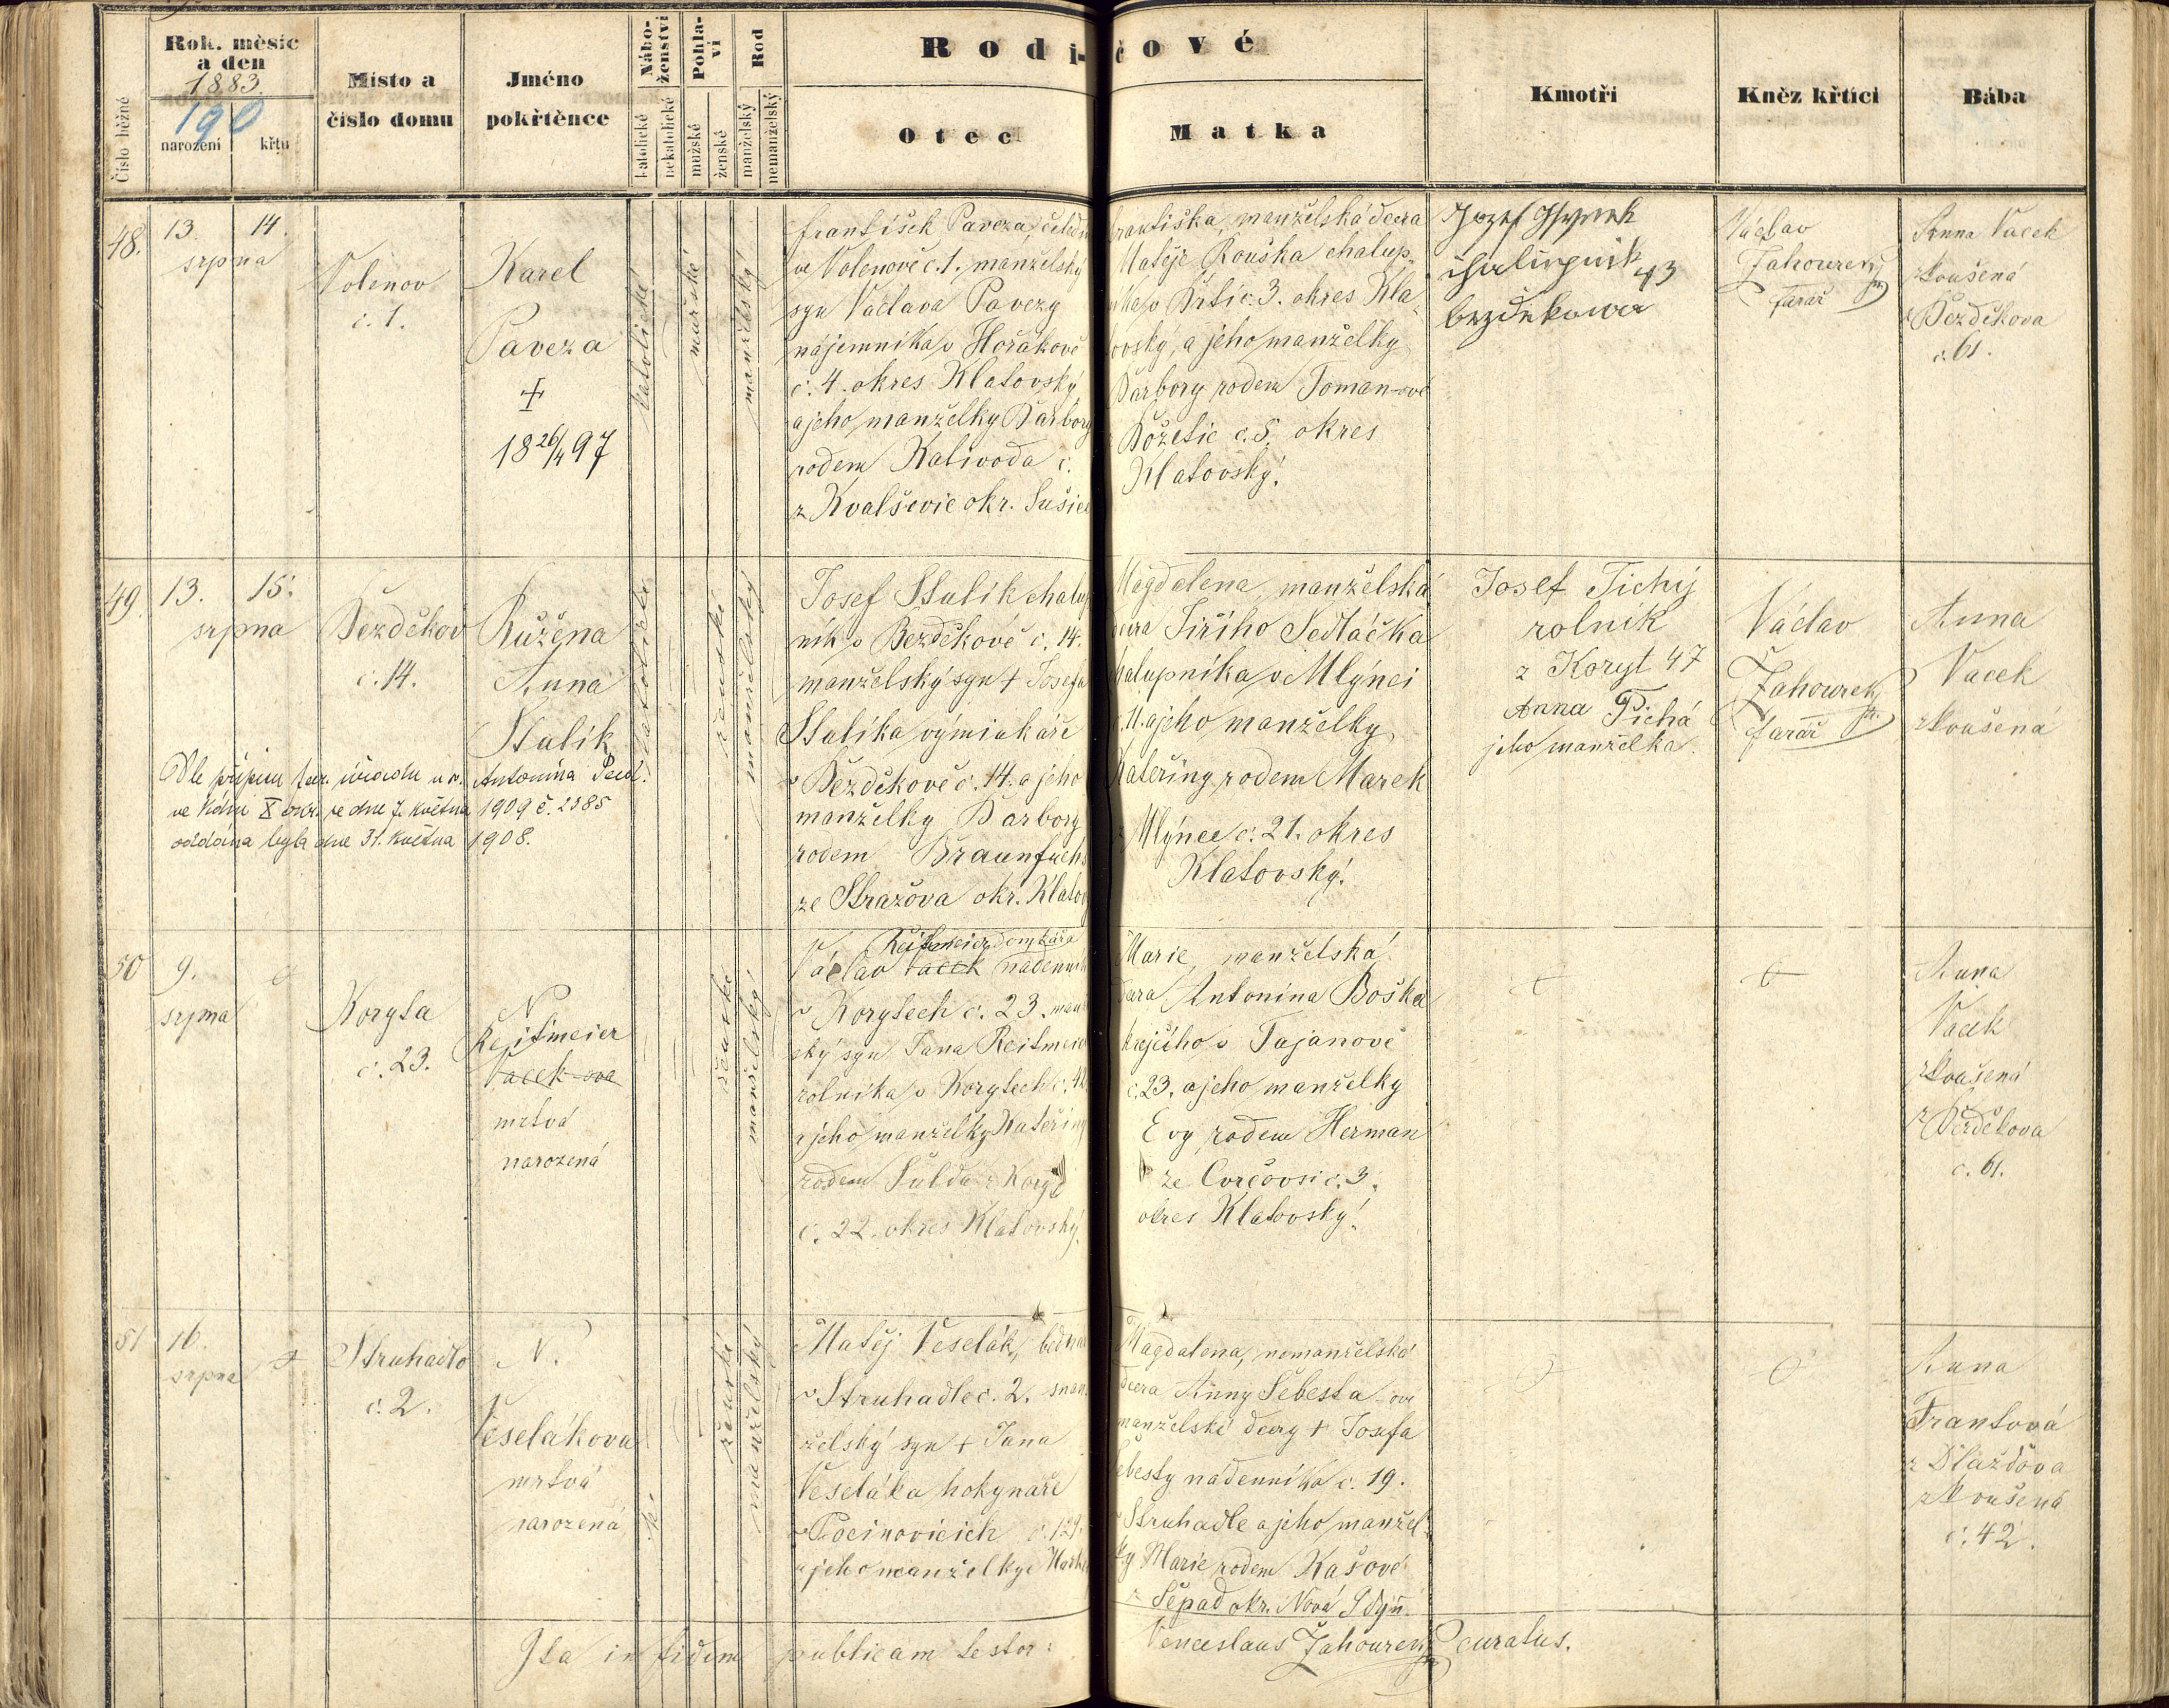 Číslo běžné
Rok, měsíc
a den
1883.
190
narození
křtu
Místo a
číslo domu
Jméno
pokřtěnce
Nábo-
ženství
katolické
nekatolické
Pohla-
ví
mužské
ženské
Rod
manželský
nemanželský
Rodi-
čové
Otec
Matka
Kmotři
Kněz křtící
Bába
48.
13.
14.
srpna
Volenov
č. 1.
Karel
Paveza
+
18 26/4 97
katolické
mužské
manželský
František Paveza, čeledín
ve Volenově č. 1. manželský
syn Václava Pavezy
nájemníka v Hořákově
č. 4. okres Klatovský
a jeho manželky Barbory
rodem Kalivoda č.
z Kvalšovic okr. Sušice
Františka, manželská dcera
Matěje Rouška chalup-
níka v č. 3. okres Kla-
tovský, a jeho manželky
Barbory rodem Toman-ové
z Božetic č. 5. okres
Klatovský.
Jozef
43
bezdekowa
Václav
Zahourek
farář
Anna Vacek
zkoušená
z Bezděkova
č. 61.
49.
13.
15.
srpna
Bezděkov
č. 14.
Růžena
Anna
Stulík
Dle přípisu far. úřadu u sv. Antonína Pad.
ve Vídni X okr. ze dne 7. května 1909 č. 2385
oddána byla dne 31. května 1908.
katolické
ženské
manželský
Josef Stulík chalup-
ník v Bezděkově č. 14.
manželský syn + Josefa
Stulíka výminkáře
v Bezděkově č. 14. a jeho
manželky Barbory
rodem Braunfuchs
ze Stražova okr. Klatovy
Magdalena, manželská
dcera Jiřího Sedláčka
chalupníka v Mlýnci
č. 11. a jeho manželky
Kateřiny rodem Marek
z Mlýnce č. 21. okres
Klatovský.
Josef Tichý
rolník
z Koryt 47
Anna Tichá
jeho manželka.
Václav
Zahourek
farář
Anna
Vacek
zkoušená
50
9.
srpna
Koryta
č. 23.
N
Reitmeier
Vacek-ova
mrtvá
narozená
ženské
manželský
Reitmeier domkáře
Václav Vacek nádenník
v Korytech č. 23. man-
ský syn Jana Reitmeier
rolníka v Korytech č. 42
a jeho manželky Kateřiny
rodem Šulda z Koryt
č. 22. okres Klatovský.
Marie, manželská
dcera Antonína Boška
krejčího v Tajanově
č. 23. a jeho manželky
Evy, rodem Herman
ze Cvrčovsi č. 3.
okres Klatovský.
Anna
Vacek
zkoušená
z Bezděkova
č. 61.
51
16.
srpna
Struhadlo
č. 2.
N.
Veselákova
mrtvá
narozená
k.
ženské
manželský
Matěj Veselák, bednář
v Struhadle č. 2. man-
želský syn + Jana
Veseláka hokynáře
v Pocinovicích č. 129.
a jeho manželky
Magdalena, nemanželská
dcera Anny Šebesta-ové
manželské dcery + Josefa
Šebesty nádenníka č. 19.
v Struhadle a jeho manžel-
ky Marie rodem Kasové
z Sepad okr. Nová Kdyň.
Anna
Frantová
z Dlažďova
zkoušená
č. 42.
Ita in fidem publicam testor:
Venceslaus Zahourek curatus.